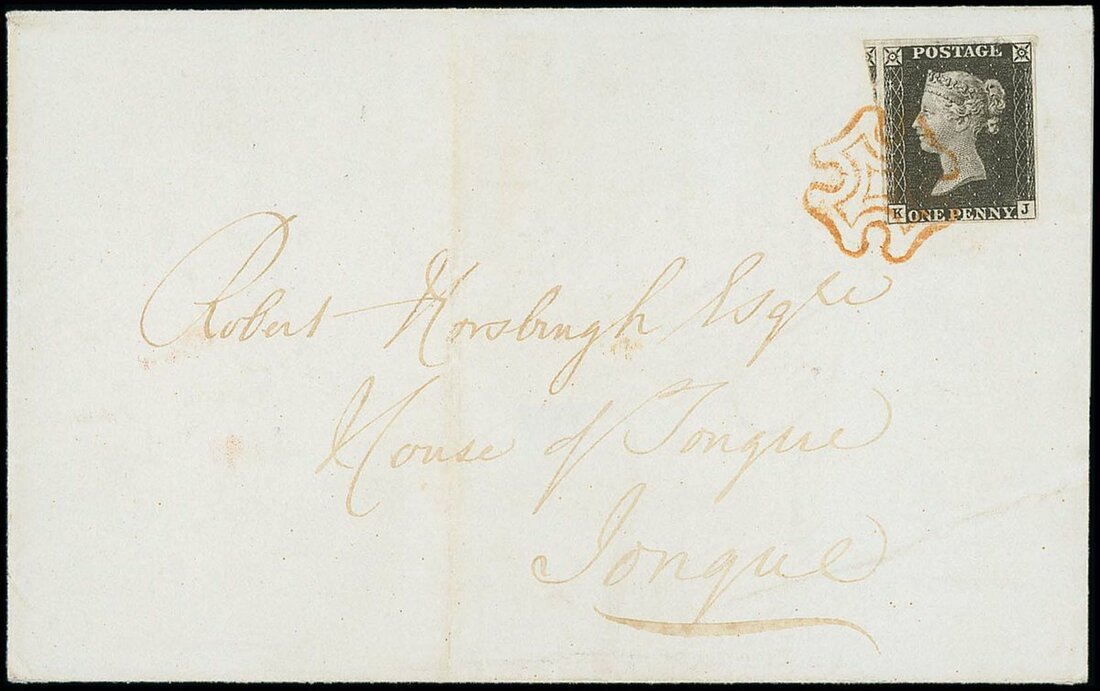 POSTAGE
K ONE PENNY J
Robert Horsburgh Esqre
House of Tongue
Tongue